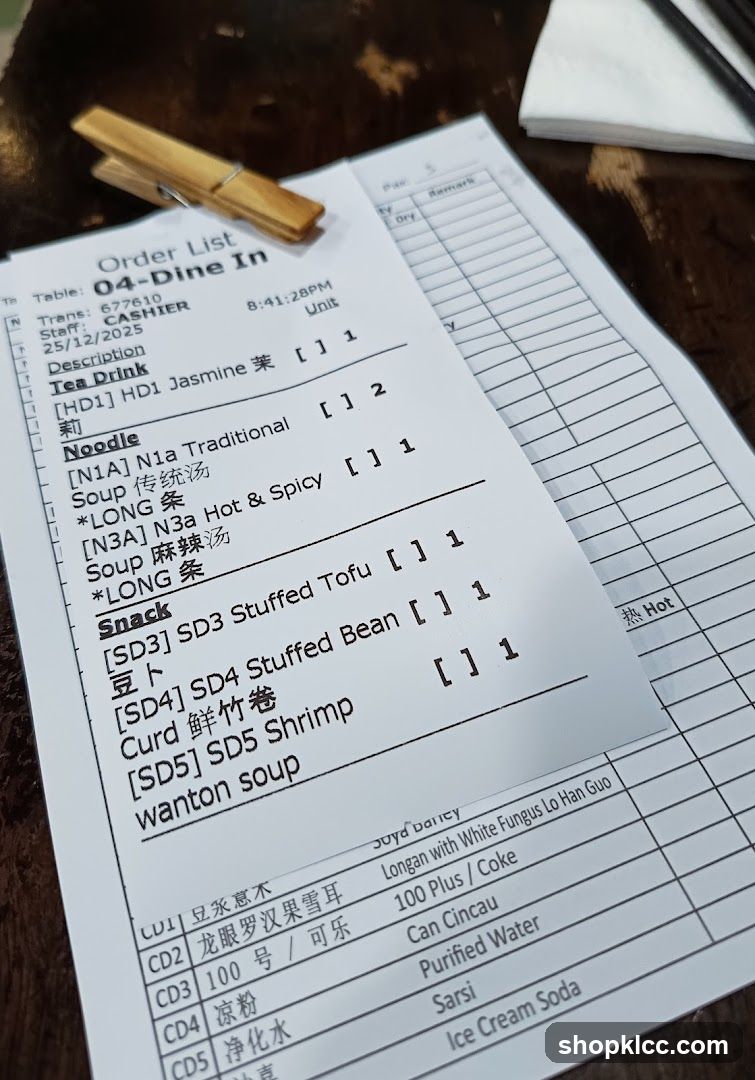 Order List
Table: 04-Dine In
Trans: 677610
Staff: CASHIER 8:41:28PM
25/12/2025 Unit
Description
Tea Drink
[HD1] HD1 Jasmine 茉 [ ] 1
莉
Noodle
[N1A] N1a Traditional [ ] 2
Soup 传统汤
*LONG 条
[N3A] N3a Hot & Spicy [ ] 1
Soup 麻辣汤
*LONG 条
Snack
[SD3] SD3 Stuffed Tofu [ ] 1
豆卜
[SD4] SD4 Stuffed Bean [ ] 1
Curd 鲜竹卷
[SD5] SD5 Shrimp [ ] 1
wanton soup
Pax: 5
Remark
Dry
热 Hot
CD1 豆浆薏米 Soya Barley
CD2 龙眼罗汉果雪耳 Longan with White Fungus Lo Han Guo
CD3 100 号 / 可乐 100 Plus / Coke
CD4 凉粉 Can Cincau
CD5 净化水 Purified Water
Sarsi
Ice Cream Soda
shopklcc.com